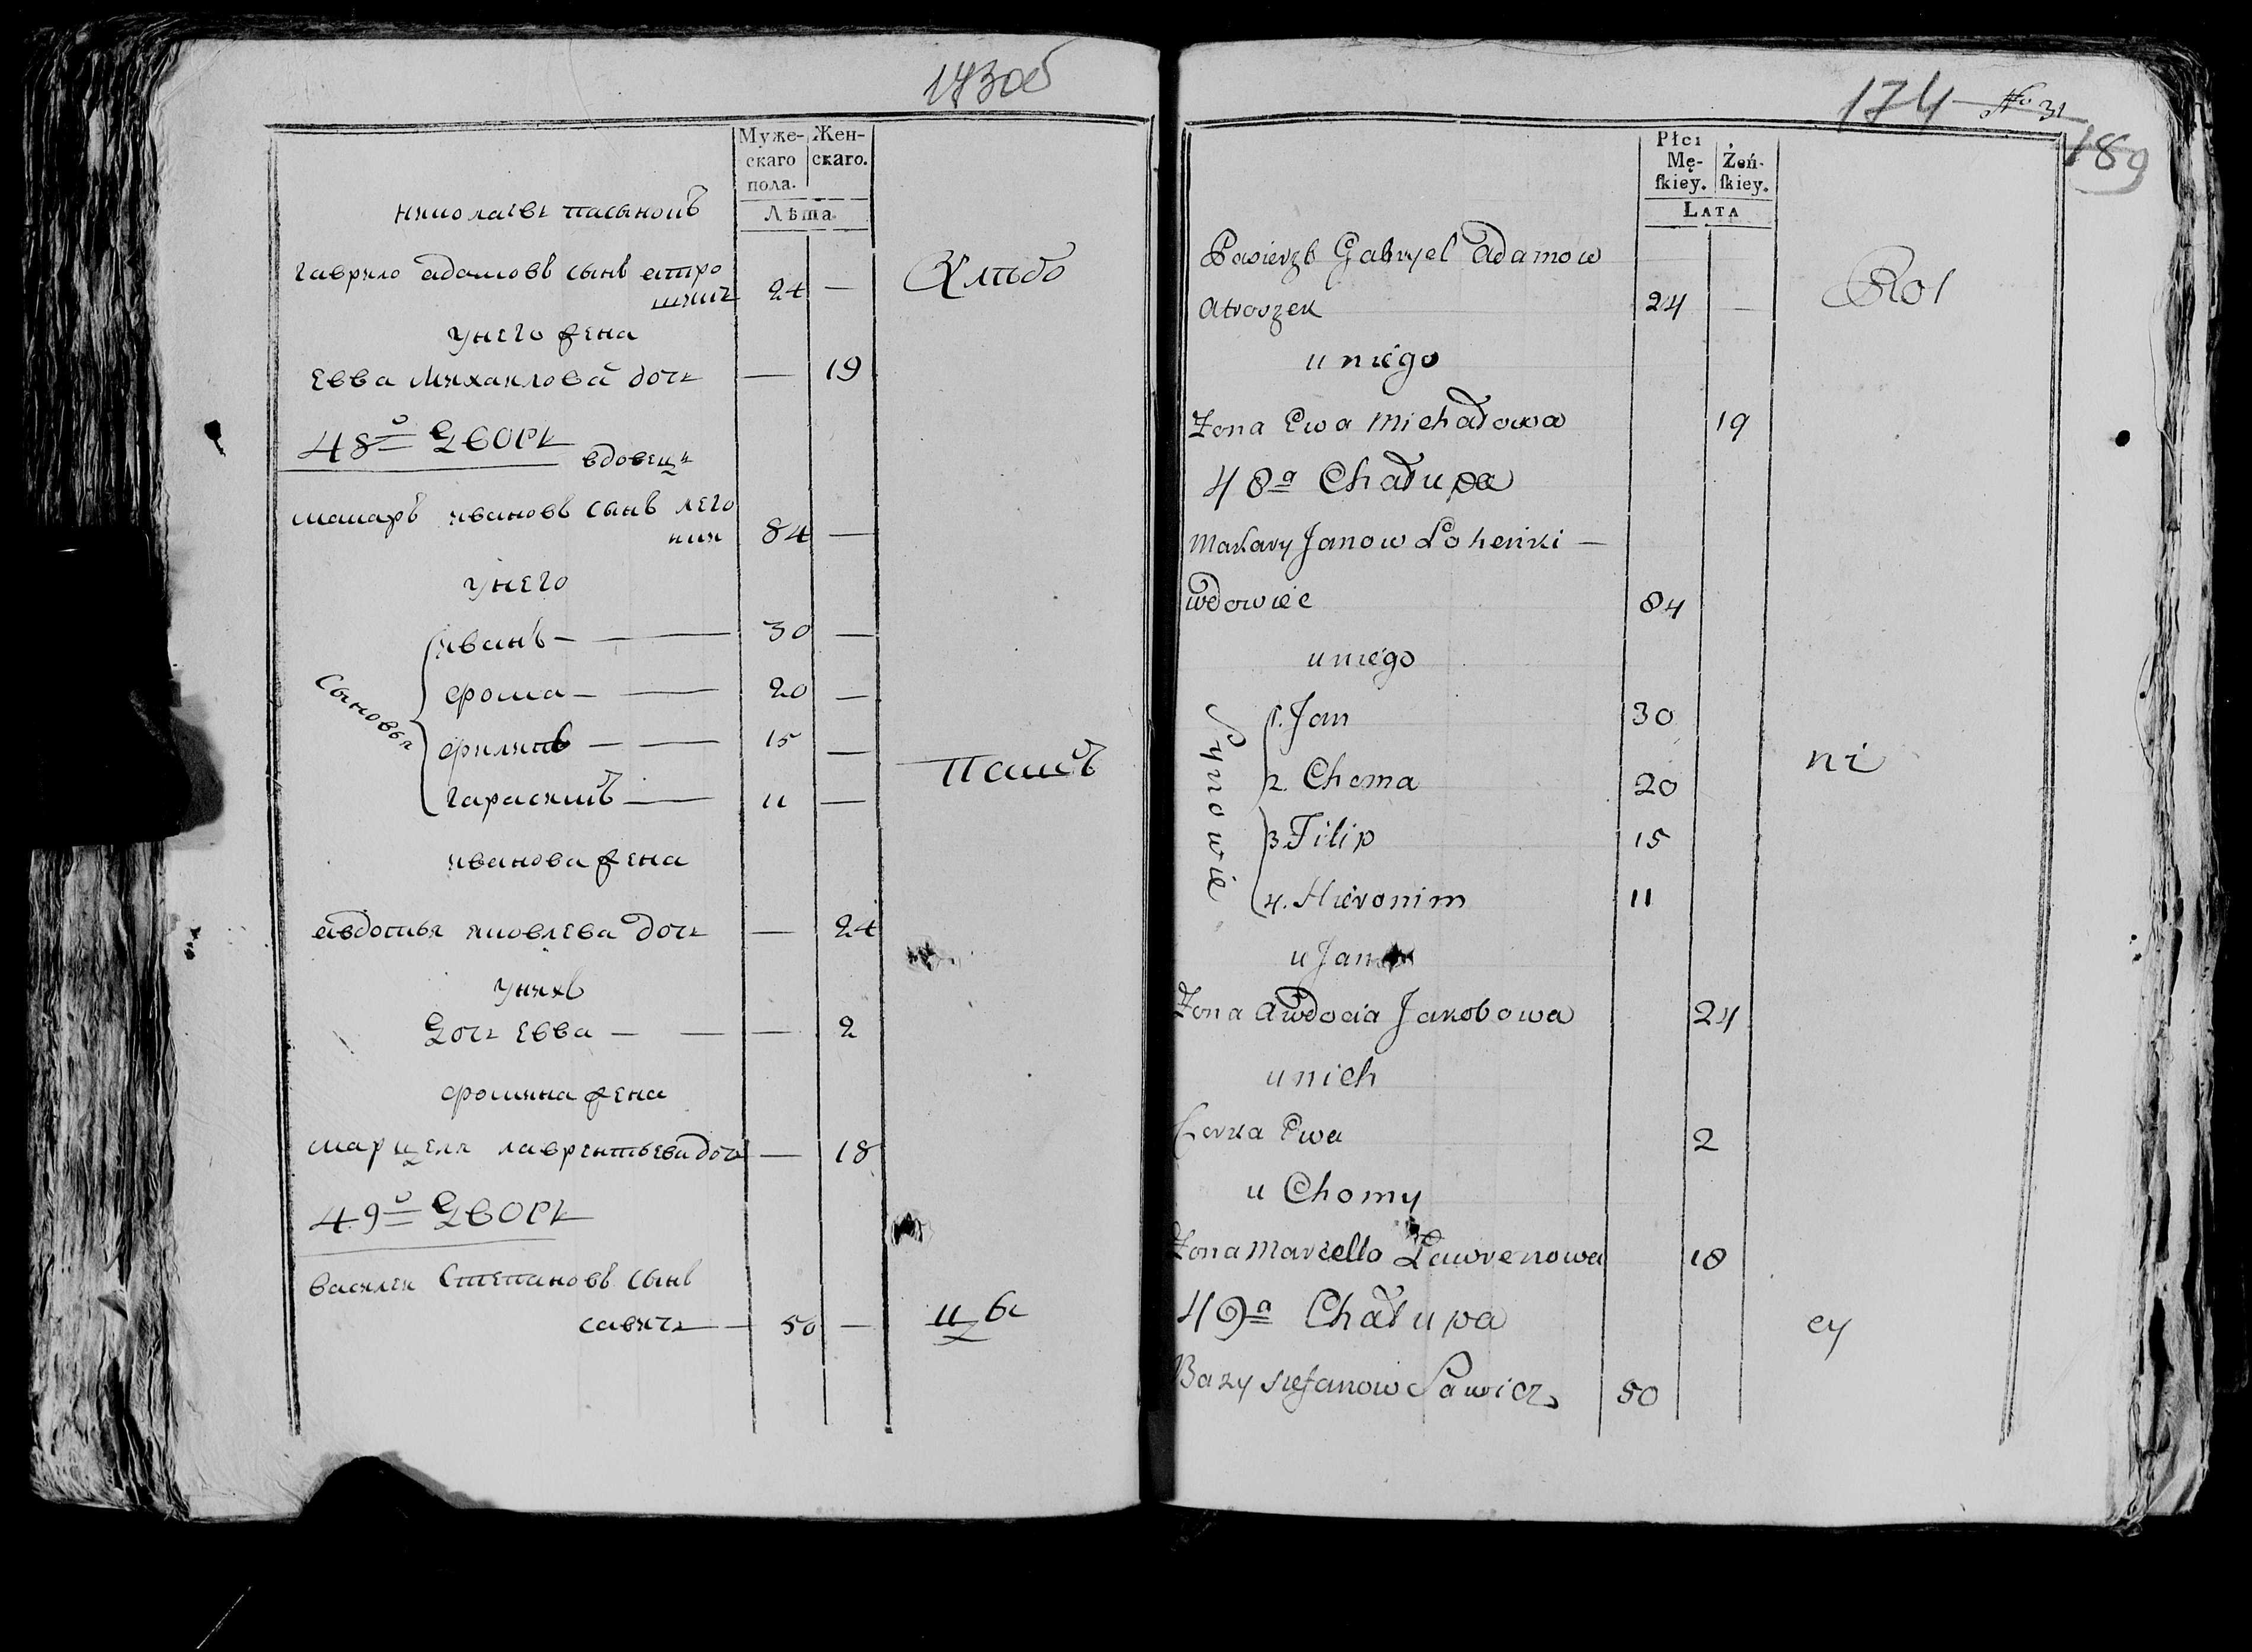 173об
Муже- Жен-
скаго скаго.
пола.
Лѣта
николаевъ пасынокъ
гаврило адамовъ сынъ атро
шикъ 24 — Хлѣбо
унего жена
Евва михаилова дочь — 19
48й Дворъ
вдовецъ
макаръ ивановъ сынъ лего
кии 84 —
унего
Сыновья
иванъ — 30 —
фома — 20 —
филипъ — 15 —
гарасимъ — 11 —
Пашъ
иванова жена
авдотья яковлева дочь — 24
унихъ
Дочь Евва — — 2
фомина жена
марцеля лаврентьева дочь — 18
49й Дворъ
василеи Степановъ сынъ
савичь — 50 — цы
174 No 31
189
Płci
Mę- Żeń-
skiey. skiey.
LATA
Pasierzb Gabryel Adamow
Atroszek 24 — Rol
u niego
Żona Ewa Michałowa 19
48a Chałupa
Makary Janow Lohenki —
wdowiec 84
u niego
Synowie
1. Jan 30
2. Choma 20 ni
3. Filip 15
4. Hieronim 11
u Jana
Żona Awdocia Jakobowa 24
u nich
Corka Ewa 2
u Chomy
Żona Marcella Lawrenowa 18
49a Chałupa
cy
Bazy Stefanow Sawicz 50